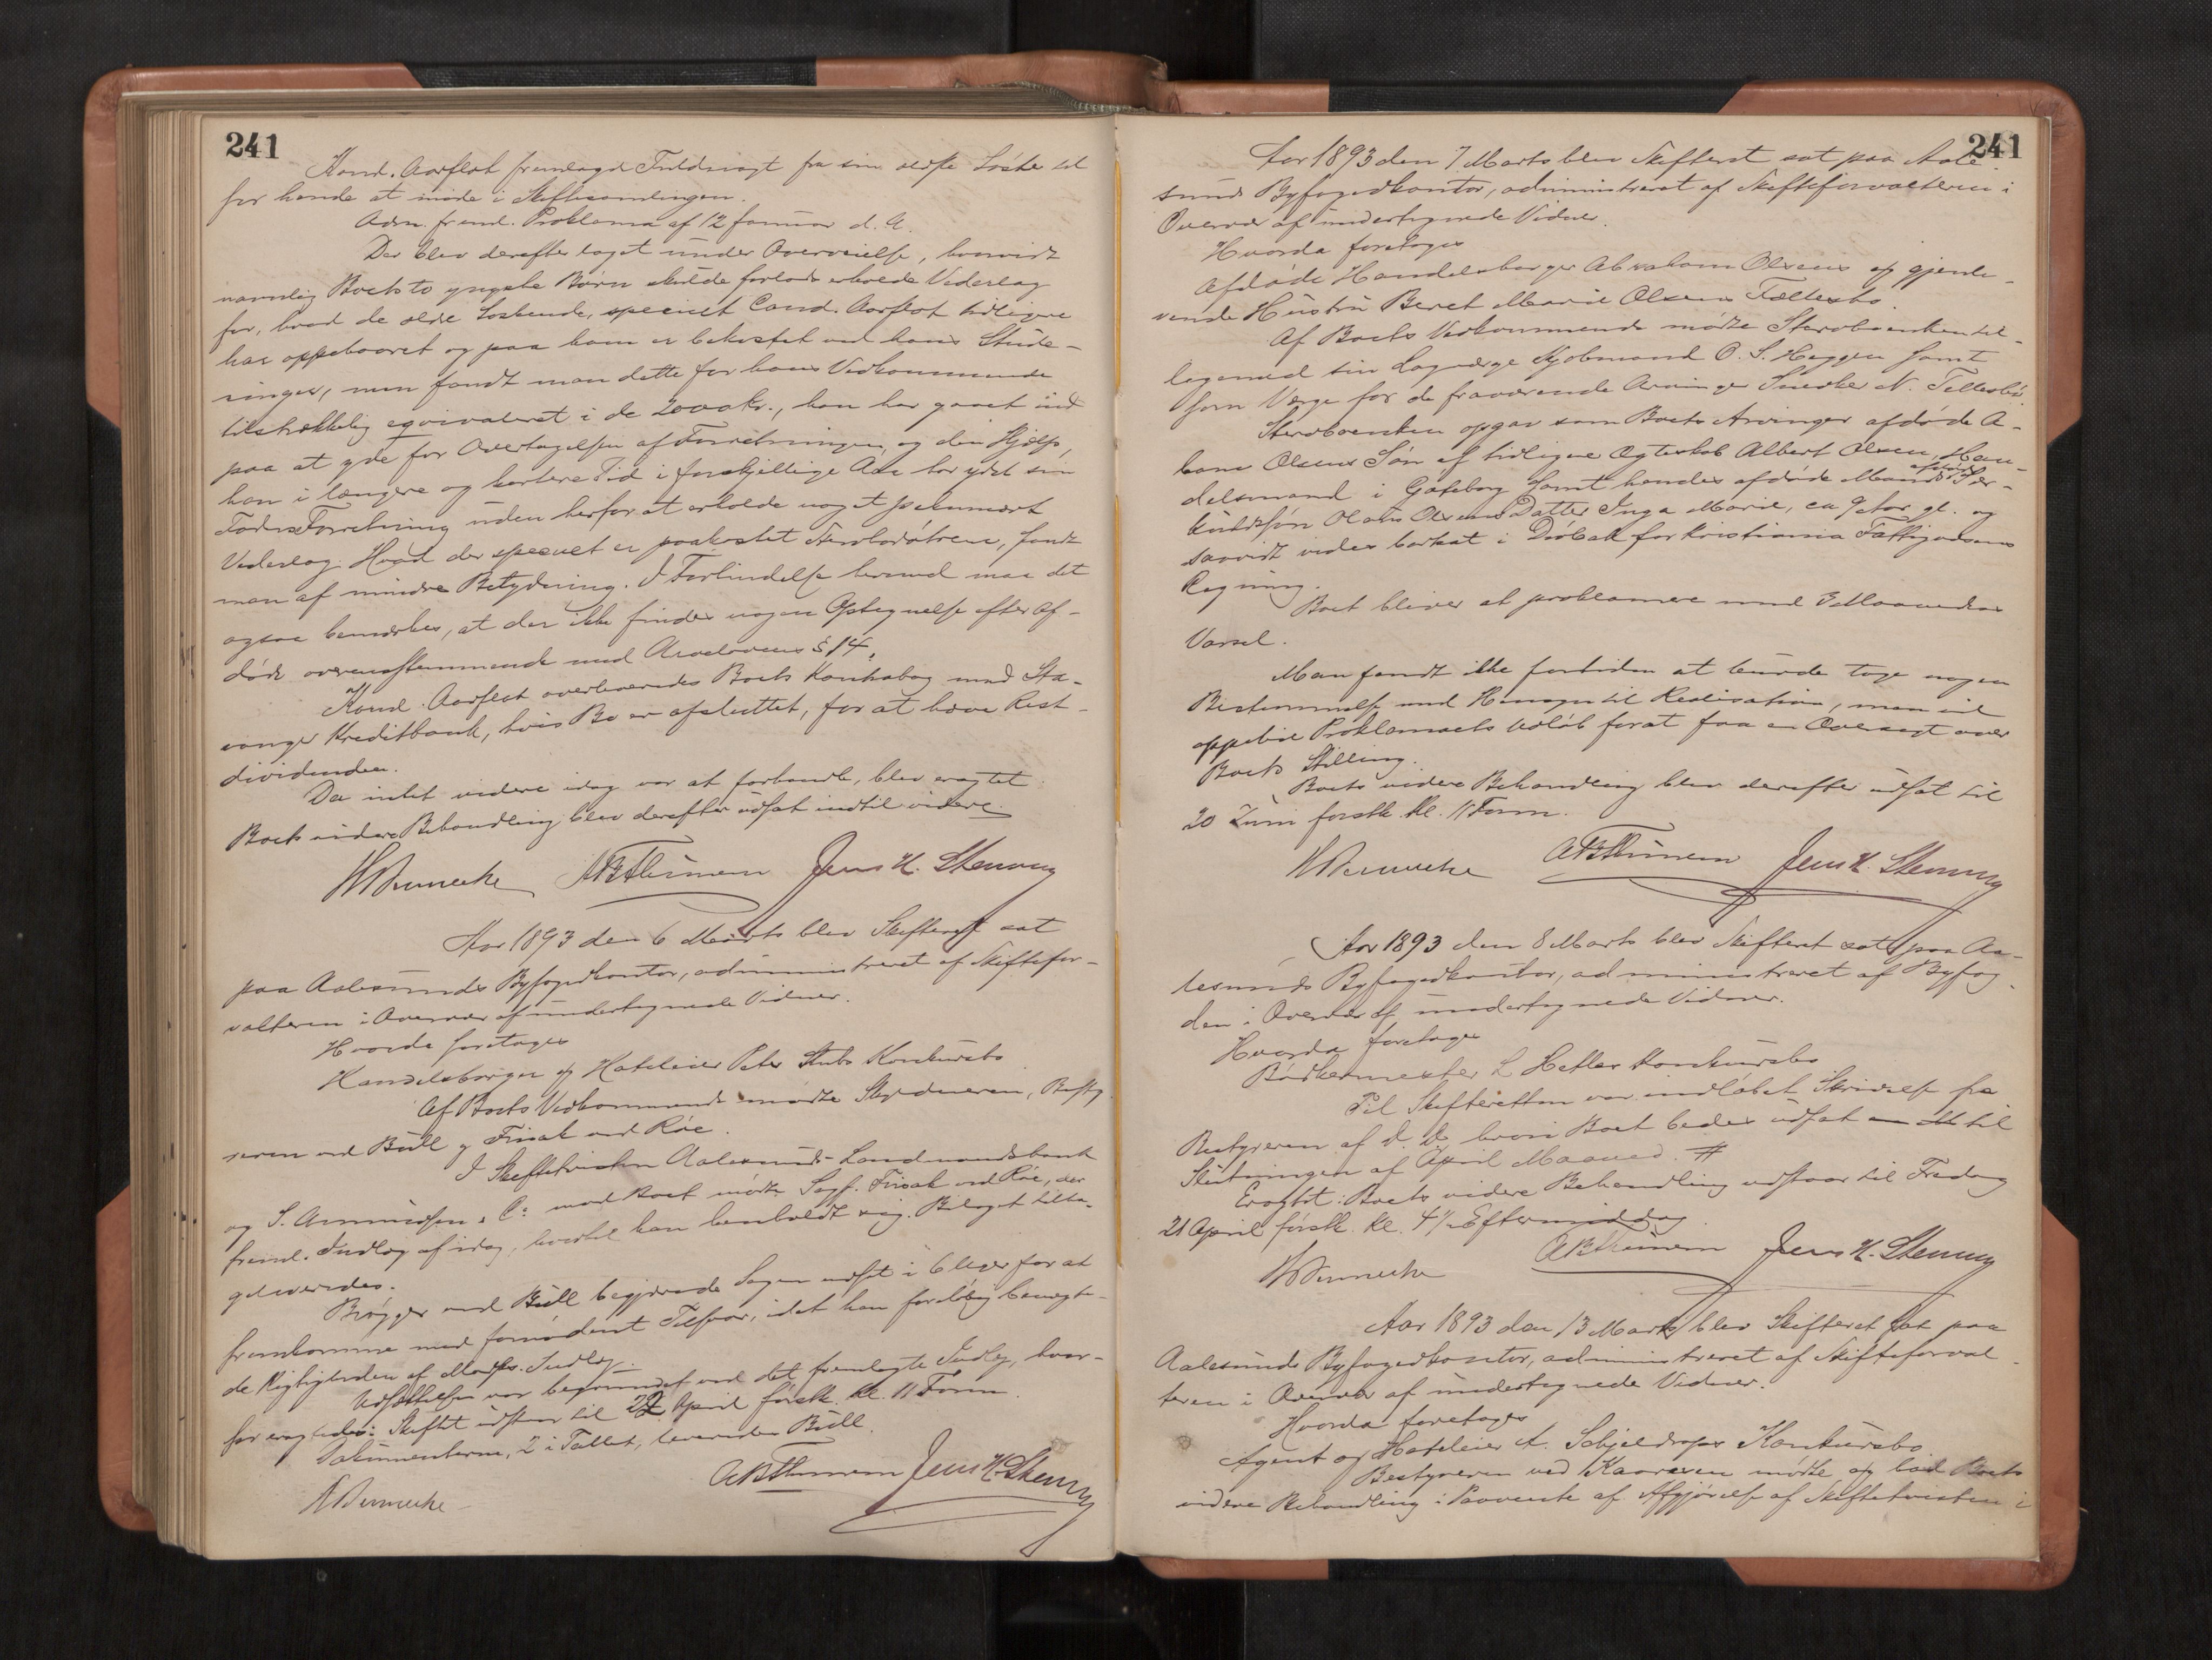 241
Kand. Aarflot fremlagde Fuldmagt fra sin ældste Søster til
for hende at møde i Skiftesamlingen.
Adm. freml. Proklama af 12 Januar d. A.
Der blev derefter taget under Overveielse, hvorvidt
navnlig Boets to yngste Børn skulde forlods erholde Vederlag
for, hvad de ældre Søskende, specielt Cand. Aarflot tidligere
har oppebaaret og paa ham er bekostet ved hans Stude-
ringer, men fandt man dette for hans Vedkommende
tilstrækkelig eqvivaleret i de 2000 Kr., han har gaaet ind
paa at yde for Overtagelsen af Forretningen og den Hjælp,
han i længere og kortere Tid i forskjellige Aar har ydet sin
Faders Forretning uden herfor at erholde noget pekuniært
Vederlag. Hvad der specielt er paakostet Stervbodøtrene, fandt
man af mindre Betydning. I Forbindelse hermed maa det
ogsaa bemærkes, at der ikke findes nogen Optegnelse efter Af-
døde overensstemmende med Arvelovens § 14.
Kand. Aarflot overleveredes Boets Kontrabog med Sta-
vanger Kreditbank, hvis Bo er afsluttet, for at hæve Rest-
dividenden.
Da intet videre idag var at forhandle, blev eragtet
Boets videre Behandling blev derefter udsat indtil videre.
WBennecke ABThinnem Jens H. Stenvig
Aar 1893 den 6 Marts blev Skifteret sat
paa Aalesunds Byfogedkontor, administreret af Skiftefor-
valteren i Overvær af undertegnede Vidner.
Hvorda foretoges
Handelsborger og Hoteleier Peter Stubs Konkursbo
Af Boets Vedkommende mødte Skyldneren, Besty-
reren ved Bull og Fiscak ved Røe.
I Skiftetvisten Aalesunds Landmandsbank
og S. Amundsen & Co mod Boet mødte Sagf. Fiscak ved Røe, der
freml. Indlæg af idag, hvortil han henholdt sig. Bilaget tilba-
geleveredes.
Brøgger ved Bull begjærede Sagen udsat i 6 Uger for at
fremkomme med fornødent Tilsvar, idet han foreløbig benægte-
de Rigtigheden af Modps. Indlæg.
Udsættelsen var begrundet ved det fremlagte Indlæg, hvor-
for eragtedes: Skiftet udstaar til 22 April førstk. Kl. 11 Form.
Dokumenterne, 2 i Tallet, leveredes Bull.
WBennecke ABThinnem Jens H. Stenvig
241
Aar 1893 den 7 Marts blev Skifteret sat paa Aale-
sunds Byfogedkontor, administreret af Skifteforvalteren i
Overvær af undertegnede Vidner.
Hvorda foretoges
Afdøde Handelsborger Abraham Olsens og gjenle-
vende Hustru Beret Marie Olsens Fællesbo.
Af Boets Vedkommende mødte Stervboenken til-
ligemed sin Lagværge Kjøbmand O. S. Heggen samt
som Værge for de fraværende Arvinger Snedker N. Tellesbø.
Stervboenken opgav som Boets Arvinger afdøde A-
hams Olsens Søn af tidligere Ægteskab Albert Olsen, Han-
delsmand i Gøteborg samt hendes afdøde Mands afdøde Sær-
kuldsøn Olaus Olsens Datter Inga Marie, ca 9 Aar gl. og
saavidt vides bortsat i Drøbak for Kristiania Fattigvæsens
Regning.
Boet bliver at proklamere med 3 Maaneders
Varsel.
Man fandt ikke fortiden at burde tage nogen
Bestemmelse med Hensyn til Realisation, men vil
oppebie Proklamaets Udløb forat faa en Oversigt over
Boets Stilling.
Boets videre Behandling blev derefter udsat til
20 Juni førstk. Kl. 11 Form.
WBennecke ABThinnem Jens H. Stenvig
Aar 1893 den 8 Marts blev Skifteret sat paa Aa-
lesunds Byfogedkontor, administreret af Byfog-
den i Overvær af undertegnede Vidner.
Hvorda foretoges
Bødkermester L Hetles Konkursbo
Til Skifteretten var indløbet Skrivelse fra
Bestyreren af d. D. hvori Boet bedes udsat til
Slutningen af April Maaned. #
Eragtet: Boets videre Behandling udstaar til Fredag
21 April førstk. Kl. 4½ Eftermiddag
WBennecke ABThinnem Jens H. Stenvig
Aar 1893 den 13 Marts blev Skifteret sat paa
Aalesunds Byfogedkontor, administreret af Skifteforval-
teren i Overvær af undertegnede Vidner.
Hvorda foretoges
Agent og Hoteleier A. Schjeldrops Konkursbo.
Bestyreren ved Kaaresen mødte og bad Boets
videre Behandling i Paavente af Afgjørelse af Skiftetvisten i